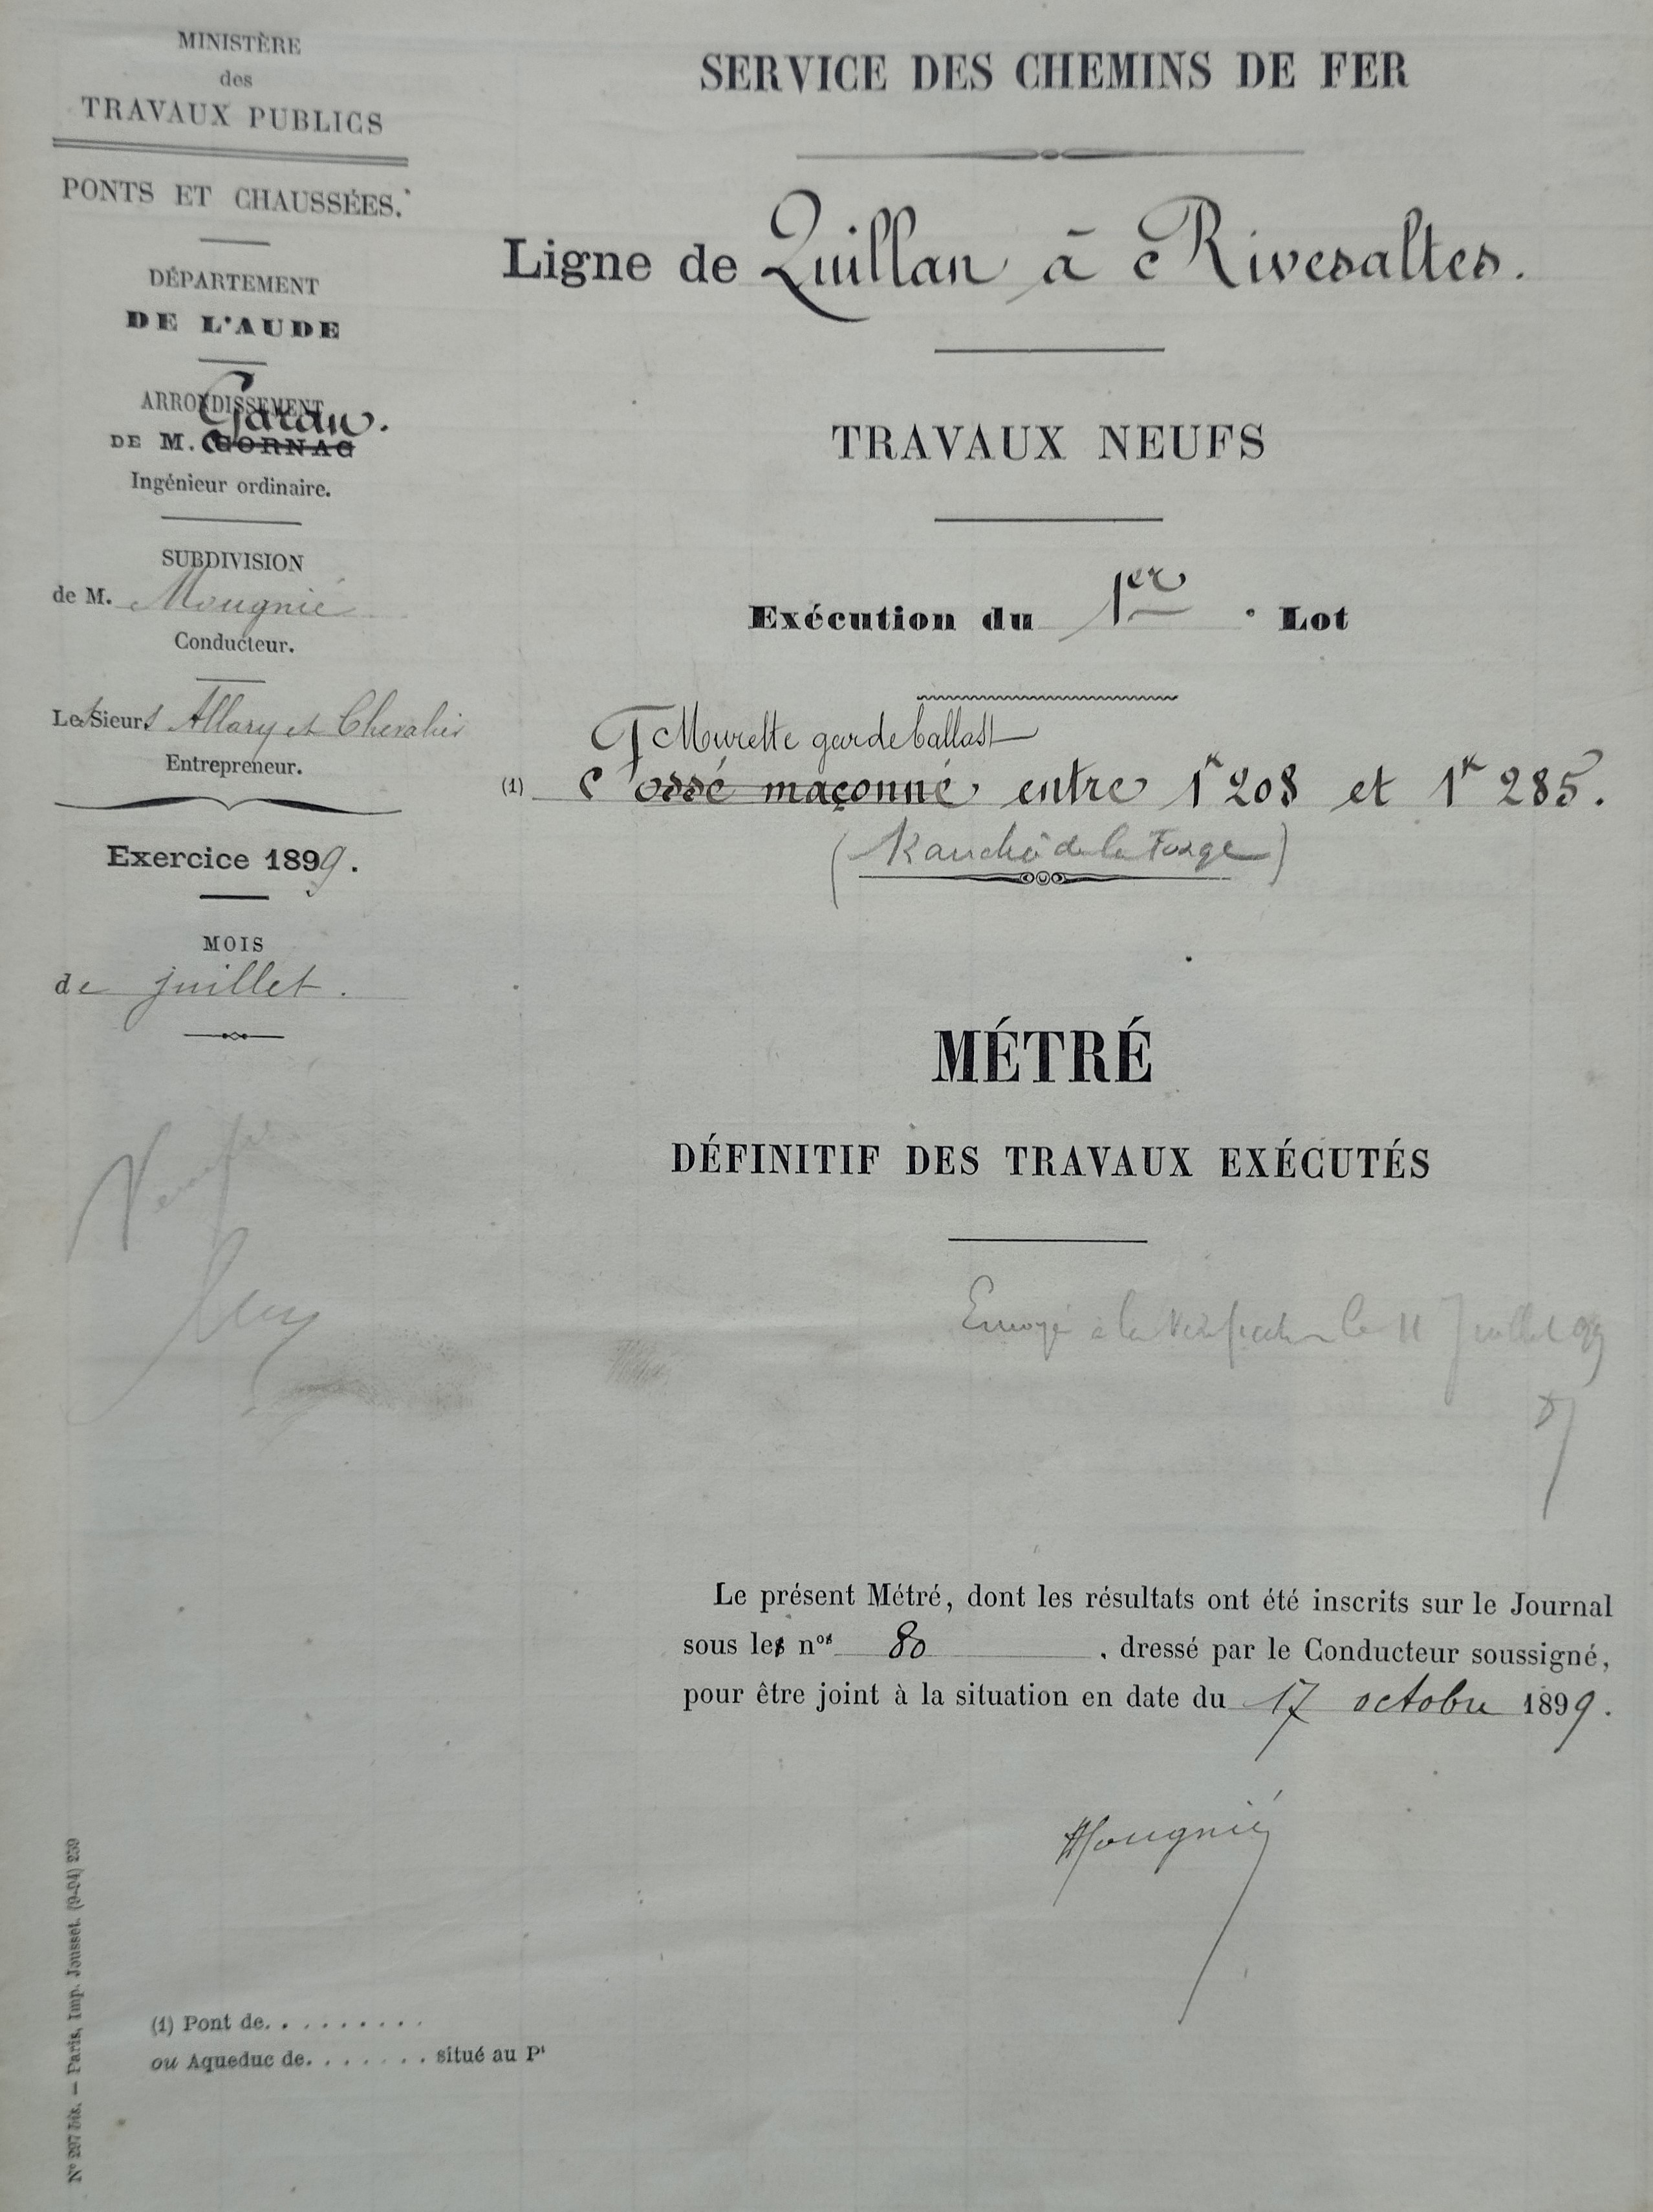 MINISTÈRE
des
TRAVAUX PUBLICS
PONTS ET CHAUSSÉES.
DÉPARTEMENT
DE L'AUDE
ARRONDISSEMENT
Garau.
DE M. CORNAC
Ingénieur ordinaire.
SUBDIVISION
de M. Mougnié
Conducteur.
Les Sieurs Allary et Chevalier
Entrepreneur.
Exercice 1899.
MOIS
de juillet.
Vérifié
SERVICE DES CHEMINS DE FER
Ligne de Quillan à Rivesaltes.
TRAVAUX NEUFS
Exécution du 1er Lot
Murette gardeballast
(1) Fossé maçonné entre 1k 208 et 1k 285.
(Tranchée de la Forge)
MÉTRÉ
DÉFINITIF DES TRAVAUX EXÉCUTÉS
Envoyé à la vérification le 11 Juillet 99
Le présent Métré, dont les résultats ont été inscrits sur le Journal
sous les nos 80, dressé par le Conducteur soussigné,
pour être joint à la situation en date du 17 octobre 1899.
Mougnié
(1) Pont de. . . . . . . . .
ou Aqueduc de. . . . . . . situé au Pt
No 297 bis. — Paris, Imp. Jousset. (9-94) 259